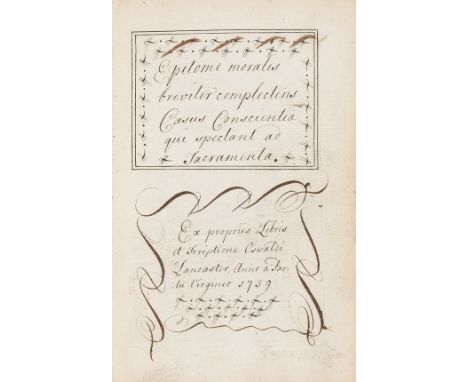 Epitome morales
breviter complectens
Casus Conscientia
qui spectant ad
Sacramenta.
Ex propriis Libris
et Scriptione Oswaldi
Lancaster, Anno à Par-
tu Virgineo 1739